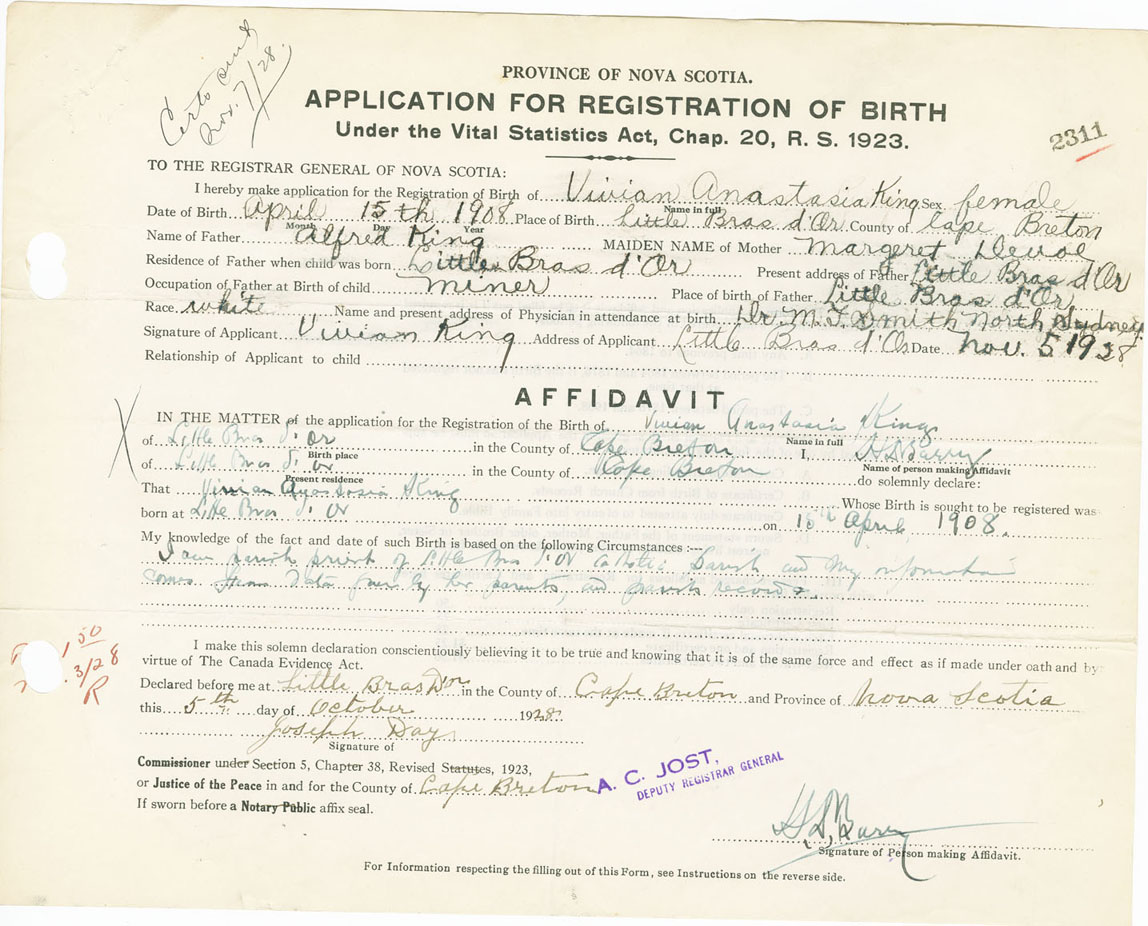 Certs sent
Nov. 7/28.
PROVINCE OF NOVA SCOTIA.
APPLICATION FOR REGISTRATION OF BIRTH
Under the Vital Statistics Act, Chap. 20, R. S. 1923.
2311
TO THE REGISTRAR GENERAL OF NOVA SCOTIA:
I hereby make application for the Registration of Birth of Vivian Anastasia King Sex female
Name in full
Date of Birth April 15th 1908 Place of Birth Little Bras d'Or County of Cape Breton
Month Day Year
Name of Father Alfred King MAIDEN NAME of Mother Margret
Residence of Father when child was born Little Bras d'Or Present address of Father Little Bras d'Or
Occupation of Father at Birth of child miner Place of birth of Father Little Bras d'Or
Race white Name and present address of Physician in attendance at birth Dr. M. T. Smith North Sydney
Signature of Applicant Vivian King Address of Applicant Little Bras d'Or Date Nov. 5 1928
Relationship of Applicant to child
AFFIDAVIT
IN THE MATTER of the application for the Registration of the Birth of Vivian Anastasia King
Name in full
of Little Bras d'Or in the County of Cape Breton I,
Birth place Name of person making Affidavit
of Little Bras d'Or in the County of Cape Breton do solemnly declare:
Present residence
That Vivian Anastasia King Whose Birth is sought to be registered was
born at Little Bras d'Or on 15th April 1908.
My knowledge of the fact and date of such Birth is based on the following Circumstances :--
I am parish priest of Little Bras d'Or Catholic Parish and my information
comes from data given by her parents, and records.
I make this solemn declaration conscientiously believing it to be true and knowing that it is of the same force and effect as if made under oath and by
virtue of The Canada Evidence Act.
1 50
3/28
R
Declared before me at Little Bras D'or in the County of Cape Breton and Province of Nova Scotia
this 5th day of October 1928.
Joseph Day
Signature of
Commissioner under Section 5, Chapter 38, Revised Statutes, 1923,
or Justice of the Peace in and for the County of Cape Breton
A. C. JOST,
DEPUTY REGISTRAR GENERAL
If sworn before a Notary Public affix seal.
Signature of Person making Affidavit.
For Information respecting the filling out of this Form, see Instructions on the reverse side.